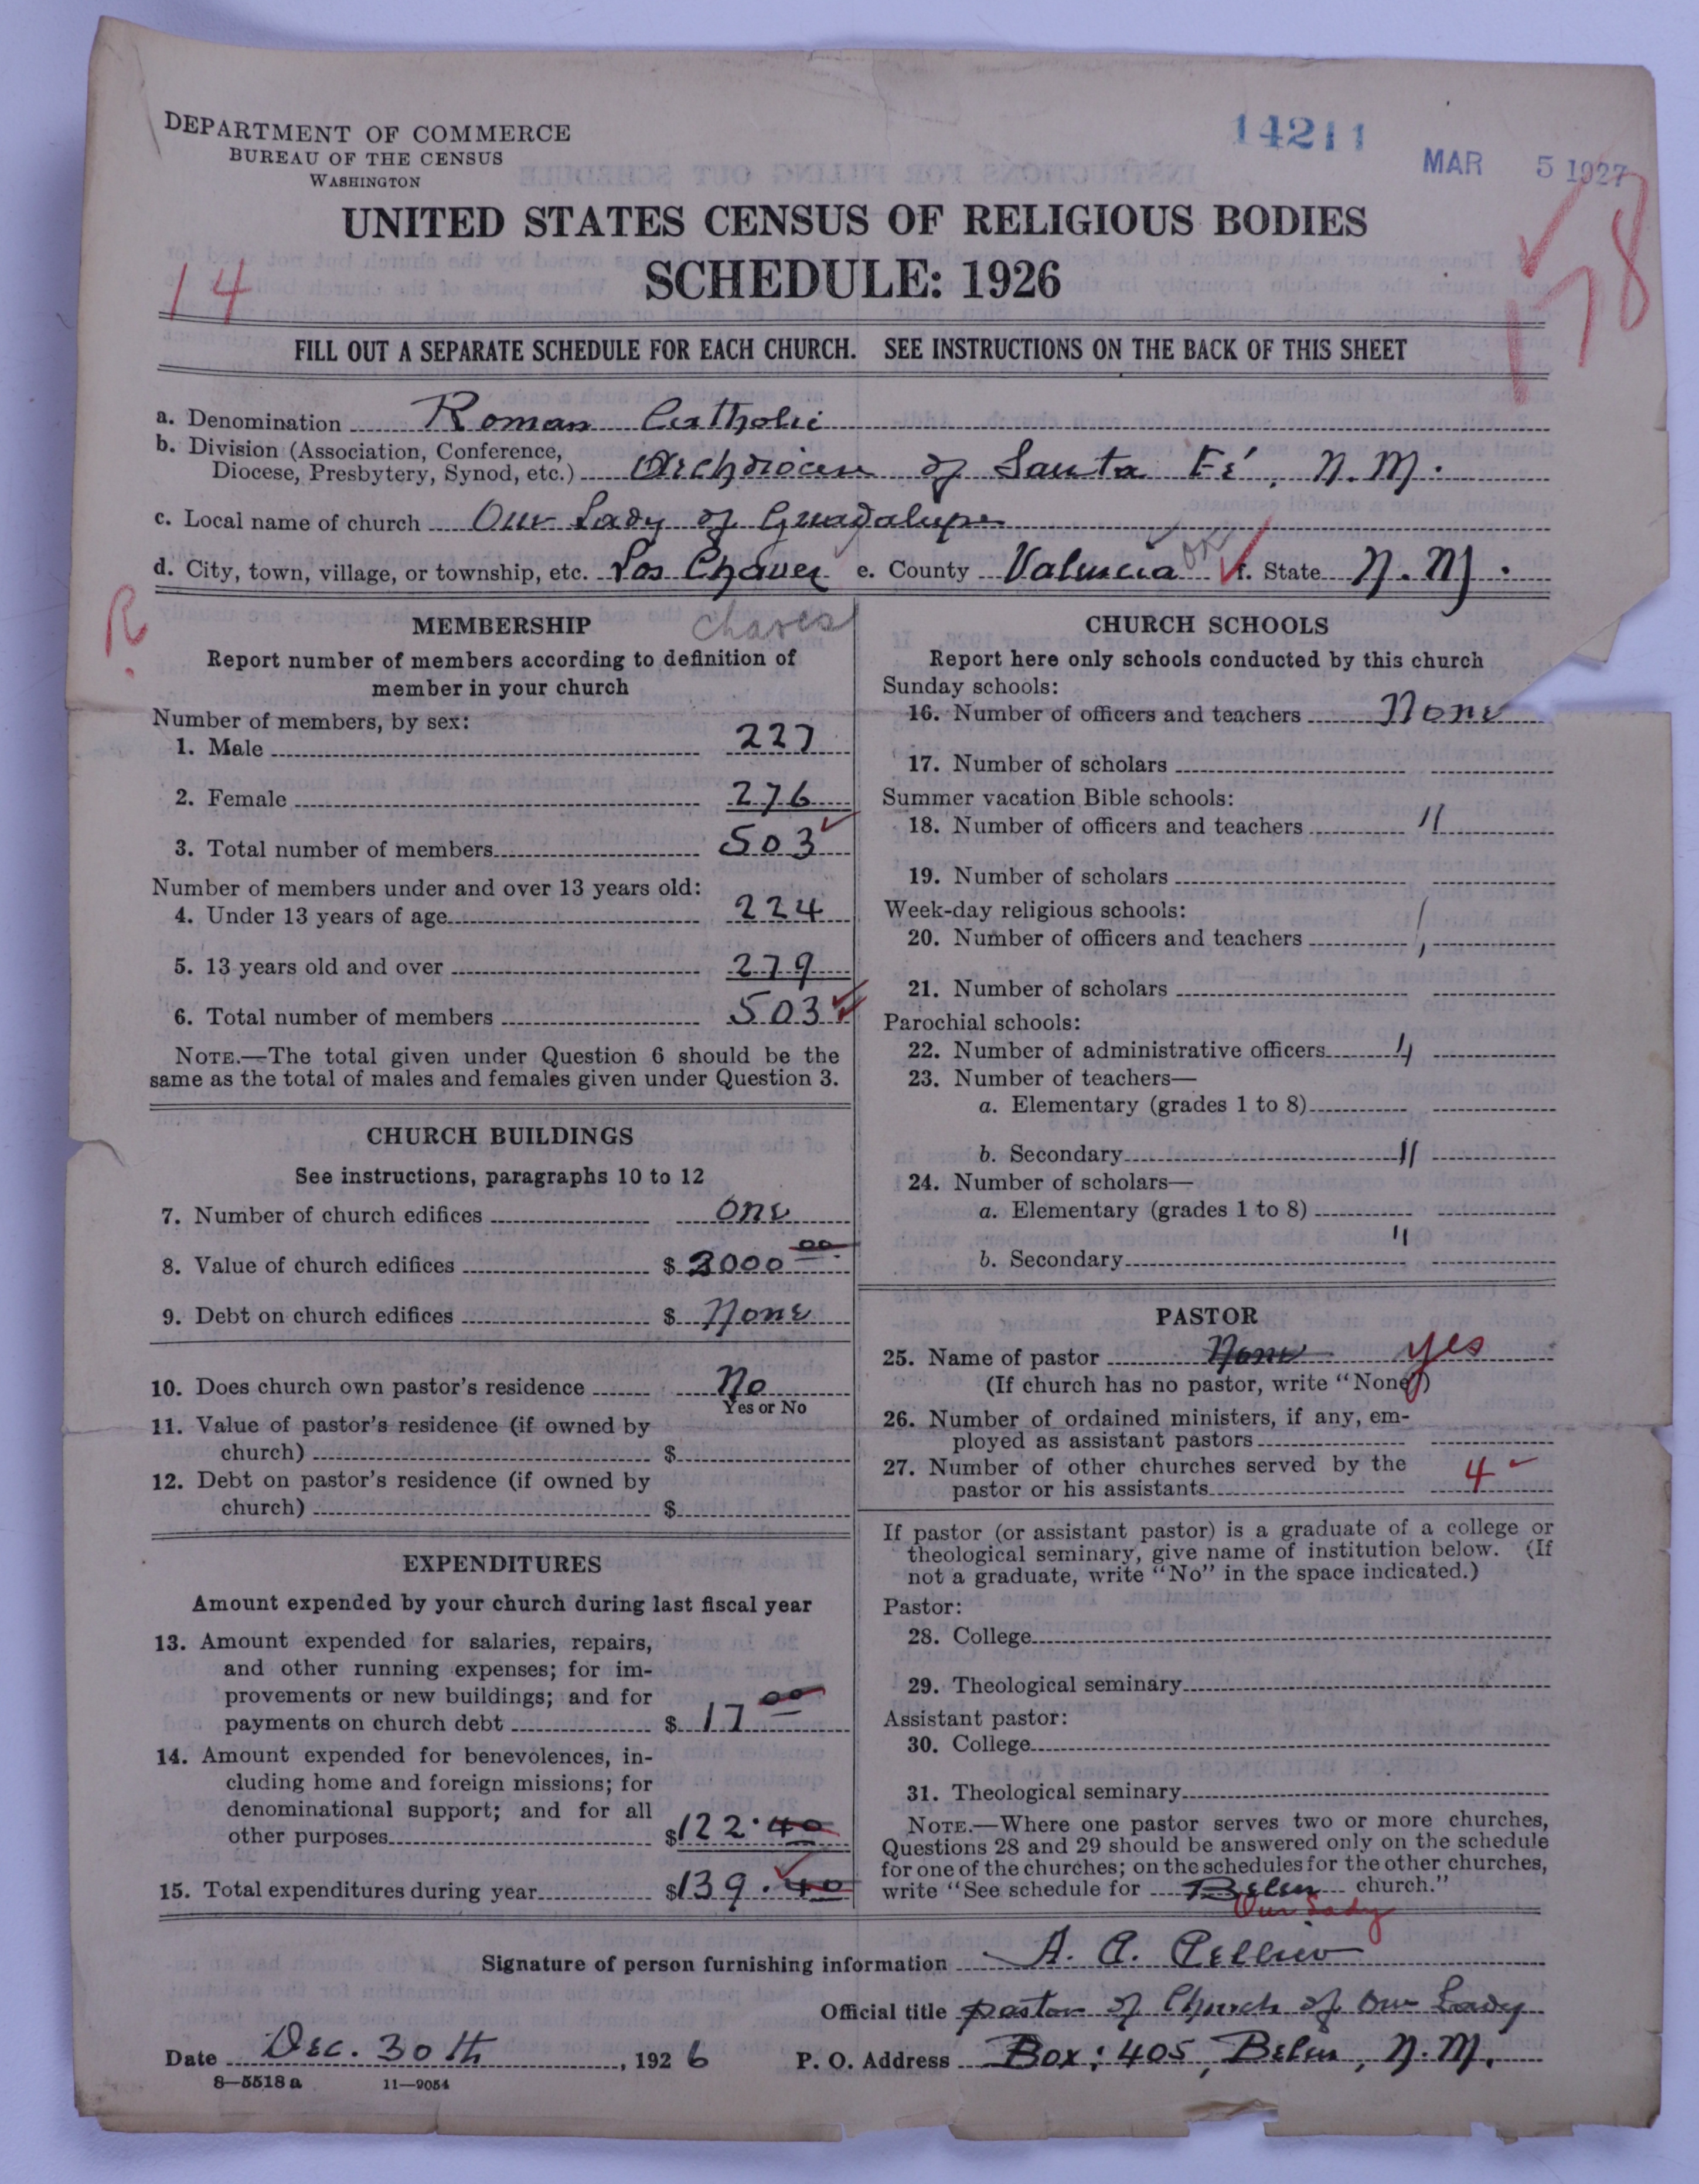 DEPARTMENT OF COMMERCE
BUREAU OF THE CENSUS
WASHINGTON
14211
MAR 5 1927
UNITED STATES CENSUS OF RELIGIOUS BODIES
SCHEDULE: 1926
14
178
FILL OUT A SEPARATE SCHEDULE FOR EACH CHURCH. SEE INSTRUCTIONS ON THE BACK OF THIS SHEET
a. Denomination Roman Catholic
b. Division (Association, Conference,
Diocese, Presbytery, Synod, etc.) Archdiocese of Santa Fé, N.M.
c. Local name of church Our Lady of Guadalupe
d. City, town, village, or township, etc. Los Chavez e. County Valencia f. State N.M.
R
chaves
MEMBERSHIP
Report number of members according to definition of
member in your church
Number of members, by sex:
1. Male 227
2. Female 276
3. Total number of members 503
Number of members under and over 13 years old:
4. Under 13 years of age 224
5. 13 years old and over 279
6. Total number of members 503
NOTE.—The total given under Question 6 should be the
same as the total of males and females given under Question 3.
CHURCH BUILDINGS
See instructions, paragraphs 10 to 12
7. Number of church edifices one
8. Value of church edifices $ 2000 00
9. Debt on church edifices $ None
10. Does church own pastor's residence No
Yes or No
11. Value of pastor's residence (if owned by
church) $
12. Debt on pastor's residence (if owned by
church) $
EXPENDITURES
Amount expended by your church during last fiscal year
13. Amount expended for salaries, repairs,
and other running expenses; for im-
provements or new buildings; and for
payments on church debt $ 17 00
14. Amount expended for benevolences, in-
cluding home and foreign missions; for
denominational support; and for all
other purposes $122.40
15. Total expenditures during year $139.40
CHURCH SCHOOLS
Report here only schools conducted by this church
Sunday schools:
16. Number of officers and teachers None
17. Number of scholars
Summer vacation Bible schools:
18. Number of officers and teachers "
19. Number of scholars
Week-day religious schools:
20. Number of officers and teachers "
21. Number of scholars
Parochial schools:
22. Number of administrative officers "
23. Number of teachers—
a. Elementary (grades 1 to 8)
b. Secondary "
24. Number of scholars—
a. Elementary (grades 1 to 8)
"
b. Secondary
PASTOR
25. Name of pastor None yes
(If church has no pastor, write "None")
26. Number of ordained ministers, if any, em-
ployed as assistant pastors
27. Number of other churches served by the
pastor or his assistants 4
If pastor (or assistant pastor) is a graduate of a college or
theological seminary, give name of institution below. (If
not a graduate, write "No" in the space indicated.)
Pastor:
28. College
29. Theological seminary
Assistant pastor:
30. College
31. Theological seminary
NOTE.—Where one pastor serves two or more churches,
Questions 28 and 29 should be answered only on the schedule
for one of the churches; on the schedules for the other churches,
write "See schedule for Belen church."
Our Lady
Signature of person furnishing information A. A.
Official title pastor of Church of Our Lady
Date Dec. 30th, 1926 P. O. Address Box: 405, Belen, N.M.
8—5518 a 11—9054